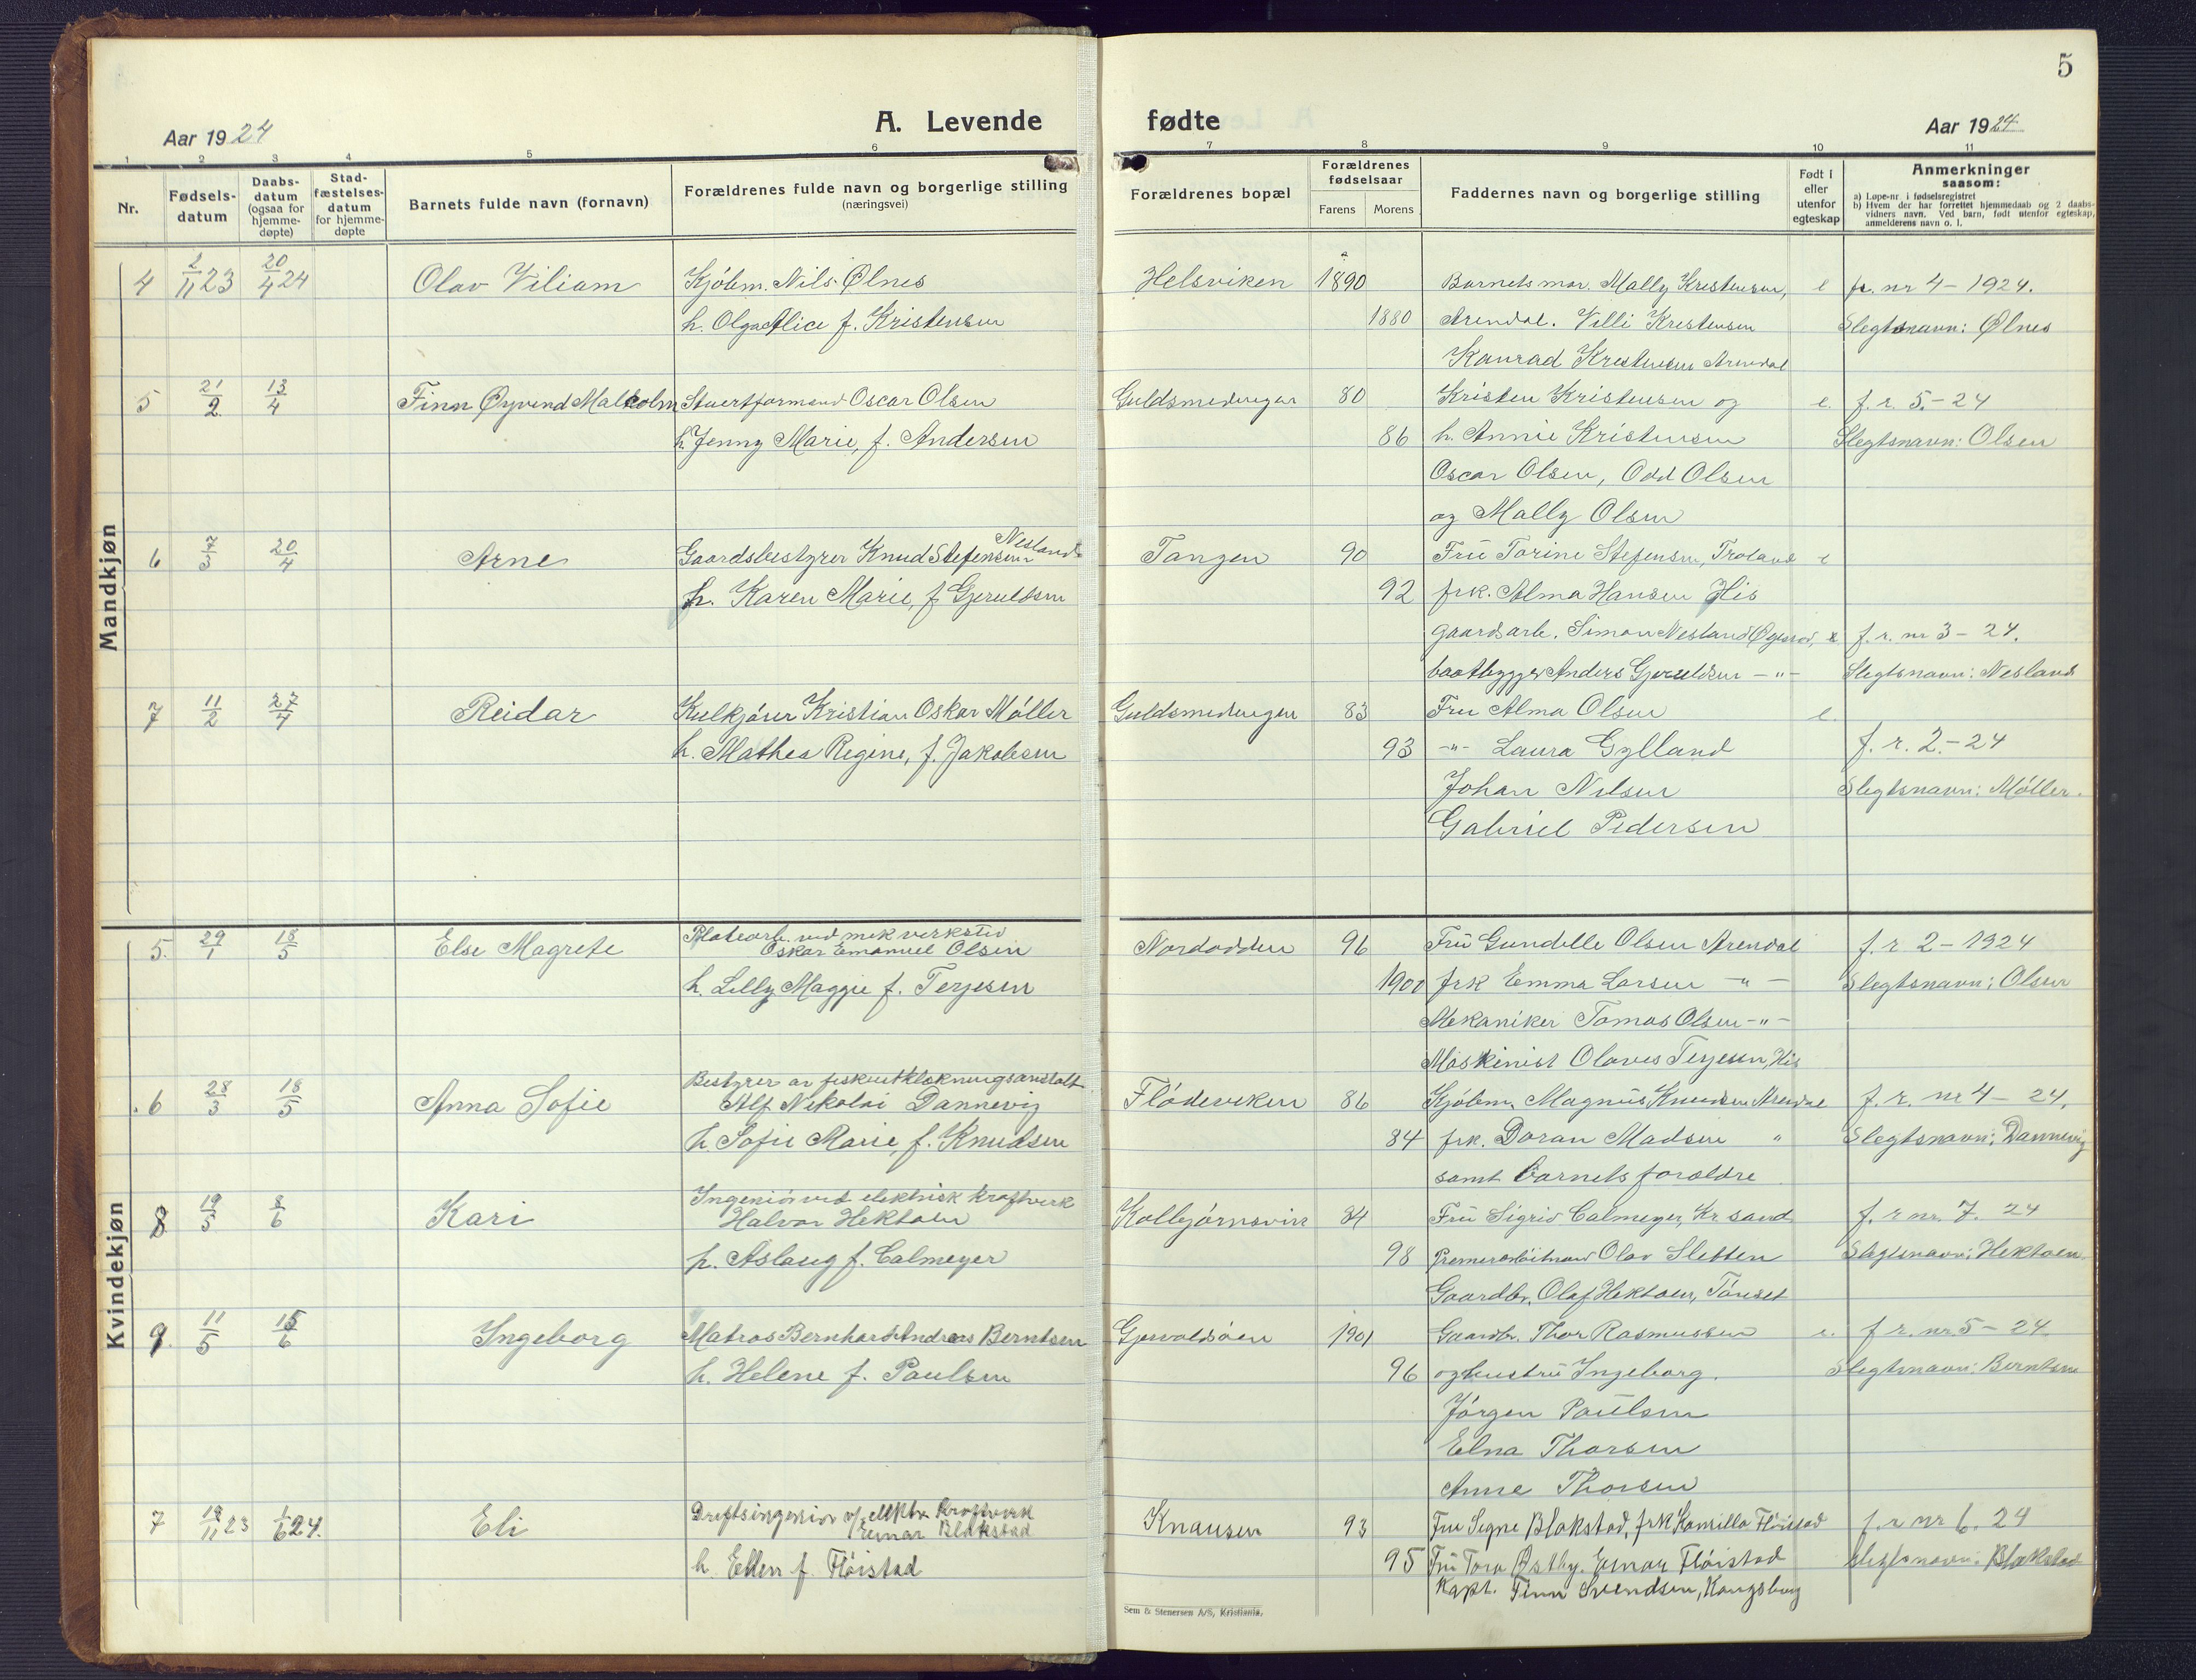 5
Aar 1924
A. Levende
fødte
Aar 1924
1 2 3 4 5 6 7 8 9 10 11
Nr.
Fødsels-
datum
Daabs-
datum
(ogsaa for
hjemme-
døpte)
Stad-
fæstelses-
datum
for hjemme-
døpte
Barnets fulde navn (fornavn)
Forældrenes fulde navn og borgerlige stilling
(næringsvei)
Forældrenes bopæl
Forældrenes
fødselsaar
Farens Morens
Faddernes navn og borgerlige stilling
Født i
eller
utenfor
egteskap
Anmerkninger
saasom:
a) Løpe-nr. i fødselsregistret
b) Hvem der har forrettet hjemmedaab og 2 daabs-
vidners navn. Ved barn, født utenfor egteskap,
anmelderens navn o. l.
Mandkjøn
4 2/11 23 20/4 24 Olav Viliam Kjøbm. Nils Ølnes Helsviken 1890 Barnets mor. Mally Kristensen, e fr. nr 4 - 1924.
h. Olga Alice f. Kristensen 1880 Arendal. Villi Kristensen Slegtsnavn: Ølnes
Konrad Kristensen Arendal
5 21/2 13/4 Finn Øyvend Malcolm Stuertformand Oscar Olsen Guldsmedengen 80 Kristen Kristensen og e. f. r. 5. - 24
h. Jenny Marie, f. Andersen 86 h. Annie Kristensen Slegtsnavn: Olsen
Oscar Olsen, Odd Olsen
og Mally Olsen
6 7/3 20/4 Arne Gaardsbestyrer Knud Stefensen Nesland Tangen 90 Fru Torine Stefensen, Froland e
h. Karen Marie, f Gjeruldsen 92 frk. Alma Hansen His
gaardsarb. Simon Nesland e f. r. nr 3 - 24.
baatbygger Anders Gjeruldsen - " - Slegtsnavn: Nesland
7 11/2 27/4 Reidar Kulkjører Kristian Oskar Møller Guldsmedengen 83 Fru Alma Olsen e.
h. Mathea Regine, f. Jakobsen 93 - " - Laura Gylland f. r. 2. - 24
Johan Nilsen Slegtsnavn: Møller.
Gabriel Pedersen
Kvindekjøn
5. 29/1 18/5 Else Magrete Platearb. ved mek verksted
Oskar Emanuel Olsen Nordodden 96 Fru Gundelle Olsen Arendal f. r. 2 - 1924
h. Lilly Maggie f. Terjesen 1900 frk Emma Larsen - " - Slegtsnavn: Olsen
Mekaniker Tomas Olsen - " -
Maskinist Olaves Terjesen, His
6 28/3 18/5 Anna Sofie Bestyrer av fiskeutklækningsanstalt
Alf Nikolai Dannevig Flødeviken 86 Kjøbm. Magnus Knudsen Arendal f. r. nr 4 - 24.
h. Sofie Marie, f. Knudsen 84 frk. Doran Madsen " Slegtsnavn: Dannevig
samt barnets forældre
8 19/3 8/6 Kari Ingeniør ved elektrisk kraftverk
Halvor Hektoen Kolbjørnsvik 84 Fru Sigrid Calmeyer, Kr. sand f. r nr. 7. 24
h. Aslaug f. Calmeyer 98 Olav Sletten Slegtsnavn: Hektoen
Gaardbr. Olaf Hektoen, Tønset
9. 11/5 15/6 Ingeborg Matros Bernhard Andreas Berntsen Gjervoldsøen 1901 Gaardbr. Thor Rasmussen e. f r. nr. 5 - 24
h. Helene f. Paulsen 96 og hustru Ingeborg. Slegtsnavn: Berntsen
Jørgen Paulsen
Elna Thorsen
Anne Thorsen
7 19/11 23 1/6 24. Eli Driftsingeniør v/ elektr. Kraftverk
Einar Blakstad Knausen 93 Fru Signe Blakstad, frk Kamilla Fløistad f. r nr 6. 24
h. Ellen f. Fløistad 95 Fru Tora Østby. Einar Fløistad Slegtsnavn: Blakstad
Kapt. Finn Svendsen, Kongsberg
Sem & Stenersen A/S, Kristiania.